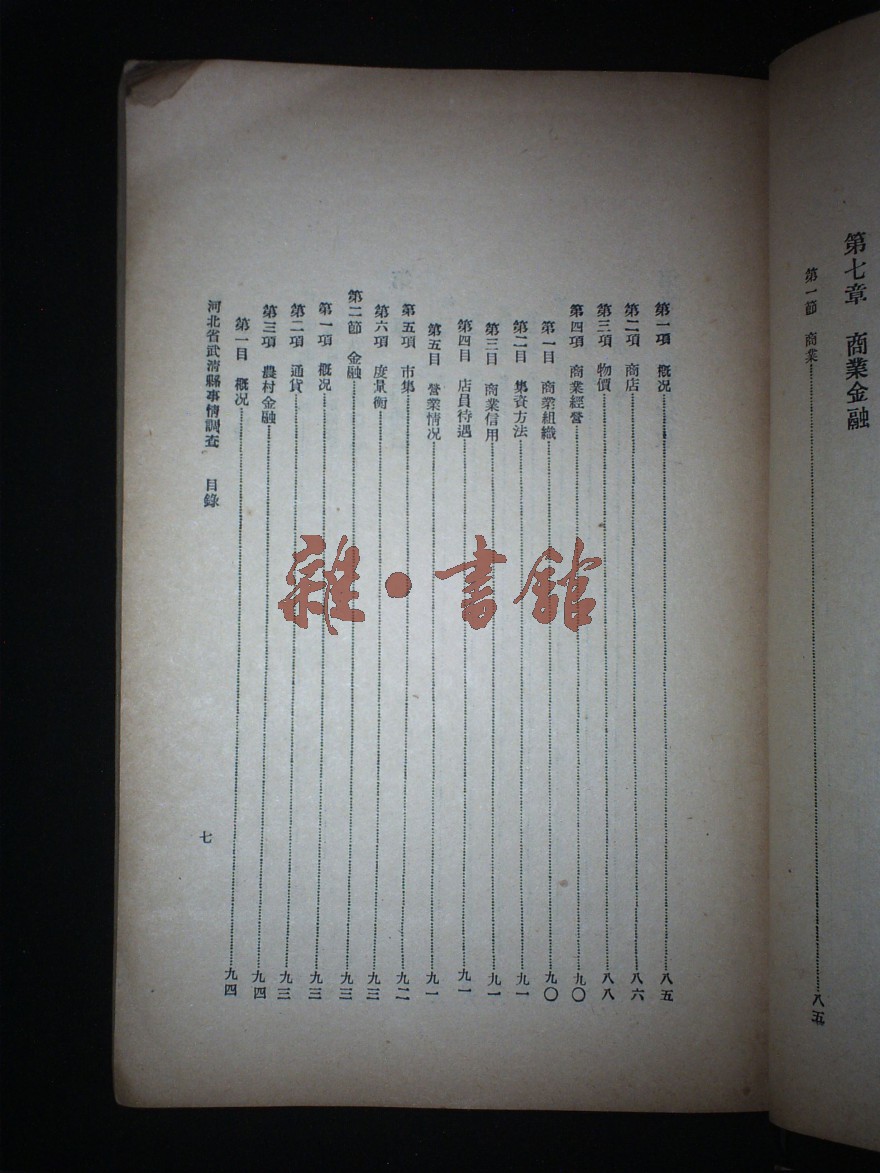 第七章　商業金融
第一節　商業……八五
第一項　概況……八五
第二項　商店……八六
第三項　物價……八八
第四項　商業經營……九〇
第一目　商業組織……九〇
第二目　集資方法……九一
第三目　商業信用……九一
第四目　店員待遇……九一
第五目　營業情况……九一
第五項　市集……九二
第六項　度量衡……九三
第二節　金融……九三
第一項　概況……九三
第二項　通貨……九三
第三項　農村金融……九四
第一目　概况……九四
河北省武清縣事情調查　目錄
七
雜·書館